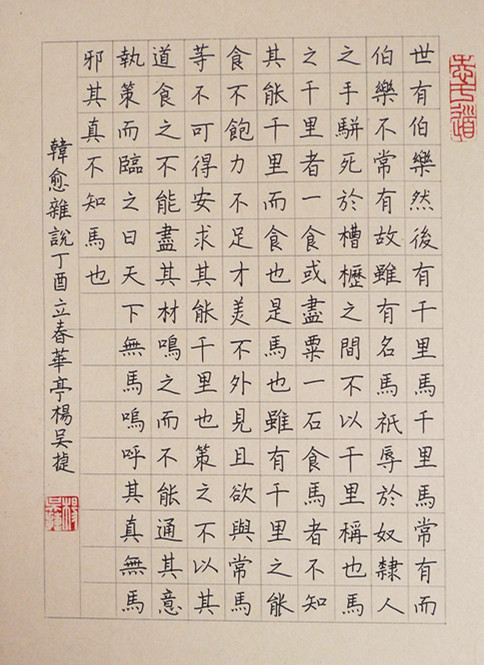 世有伯樂然後有千里馬千里馬常有而
伯樂不常有故雖有名馬祇辱於奴隸人
之手駢死於槽櫪之間不以千里稱也馬
之千里者一食或盡粟一石食馬者不知
其能千里而食也是馬也雖有千里之能
食不飽力不足才美不外見且欲與常馬
等不可得安求其能千里也策之不以其
道食之不能盡其材鳴之而不能通其意
執策而臨之曰天下無馬嗚呼其真無馬
邪其真不知馬也
韓愈雜說丁酉立春華亭楊吳捷